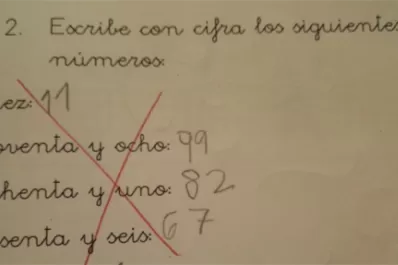 2. Escribe con cifra los siguientes
números:
ez: 11
oventa y ocho: 99
henta y uno: 82
senta y seis: 67